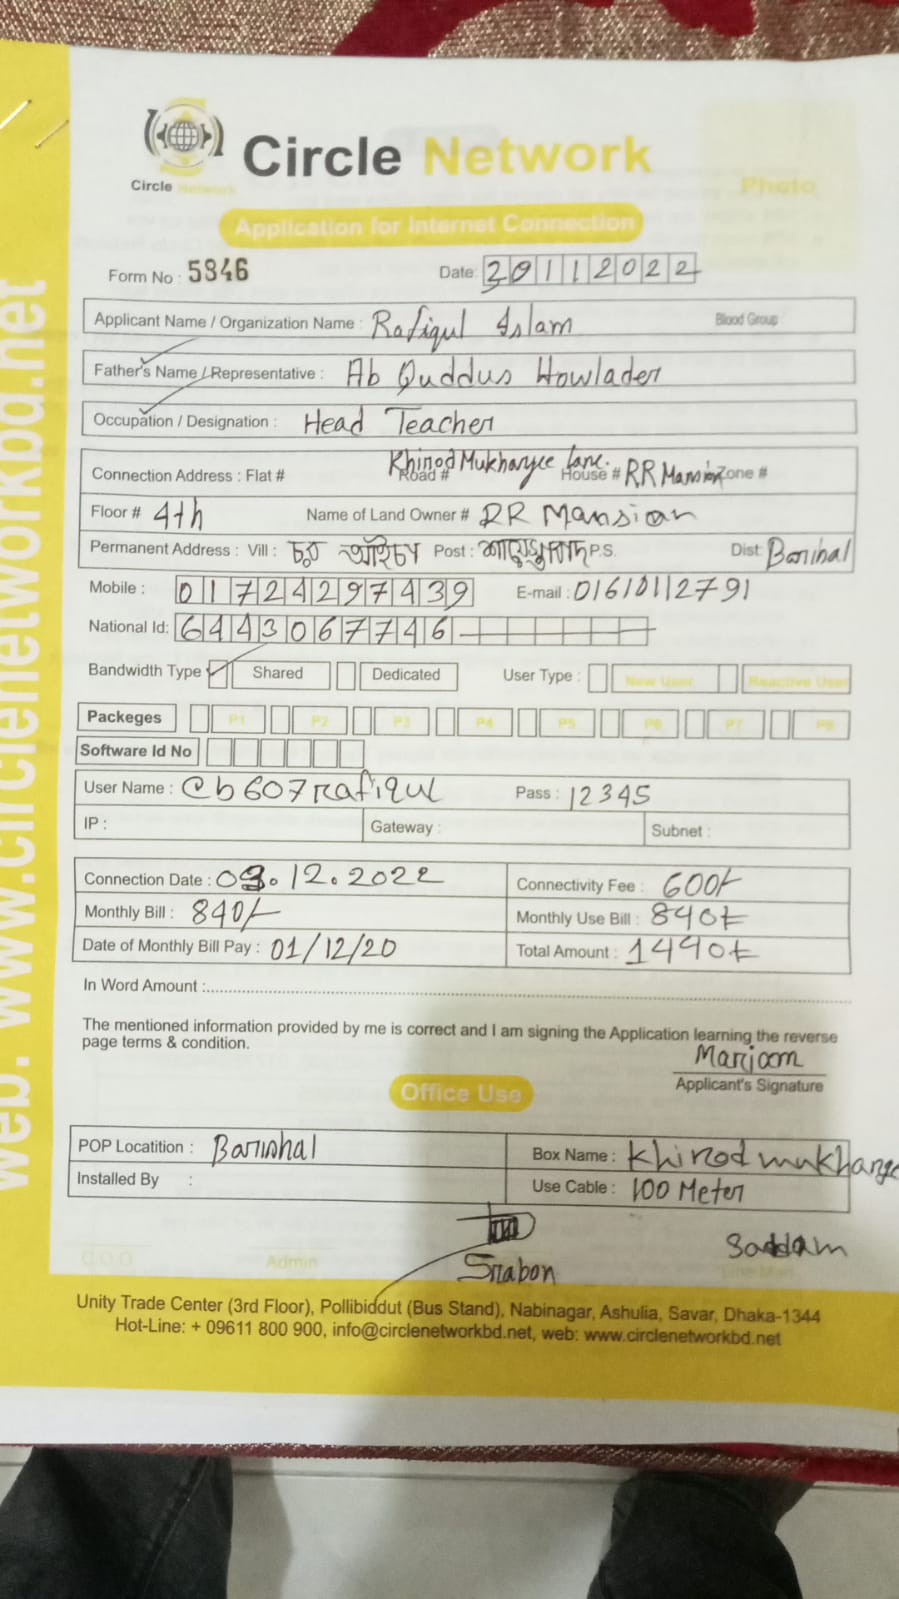 Circle Network
Circle Network
Photo
Application for Internet Connection
Form No : 5846 Date: 30112022
Applicant Name / Organization Name : Rafiqul Islam Blood Group
Father's Name / Representative : Ab Quddus Howlader
Occupation / Designation : Head Teacher
Connection Address : Flat # Road # Khirod Mukharjee lane. House # RR Mansion Zone #
Floor # 4th Name of Land Owner # RR Mansion
Permanent Address : Vill : চর আইচা Post : P.S. Dist: Barishal
Mobile : 01724297439 E-mail : 01610112791
National Id: 6443067746
Bandwidth Type Shared Dedicated User Type : New User Reactive User
Packeges P1 P2 P3 P4 P5 P6 P7 P8
Software Id No
User Name : @b607rafiqul Pass : 12345
IP : Gateway : Subnet :
Connection Date : 03.12.2022 Connectivity Fee : 600/-
Monthly Bill : 840/- Monthly Use Bill : 840/-
Date of Monthly Bill Pay : 01/12/20 Total Amount : 1440/-
In Word Amount :
The mentioned information provided by me is correct and I am signing the Application learning the reverse
page terms & condition.
Mariom
Applicant's Signature
Office Use
POP Locatition : Barishal Box Name : Khirod mukharge
Installed By : Use Cable : 100 Meter
Srabon Saddam
Admin
Unity Trade Center (3rd Floor), Pollibiddut (Bus Stand), Nabinagar, Ashulia, Savar, Dhaka-1344
Hot-Line: + 09611 800 900, info@circlenetworkbd.net, web: www.circlenetworkbd.net
web: www.circlenetworkbd.net